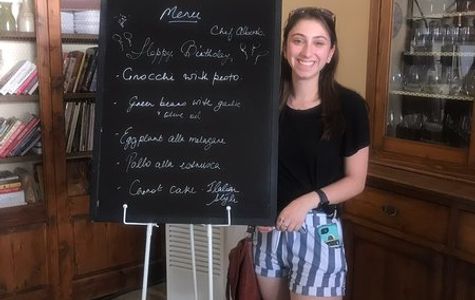 Menu
Chef Alberto
Happy Birthday,
- Gnocchi with pesto.
- Green beans with garlic
& olive oil
- Eggplant alla
- Pollo alla
- Carrot cake - Italian
Style